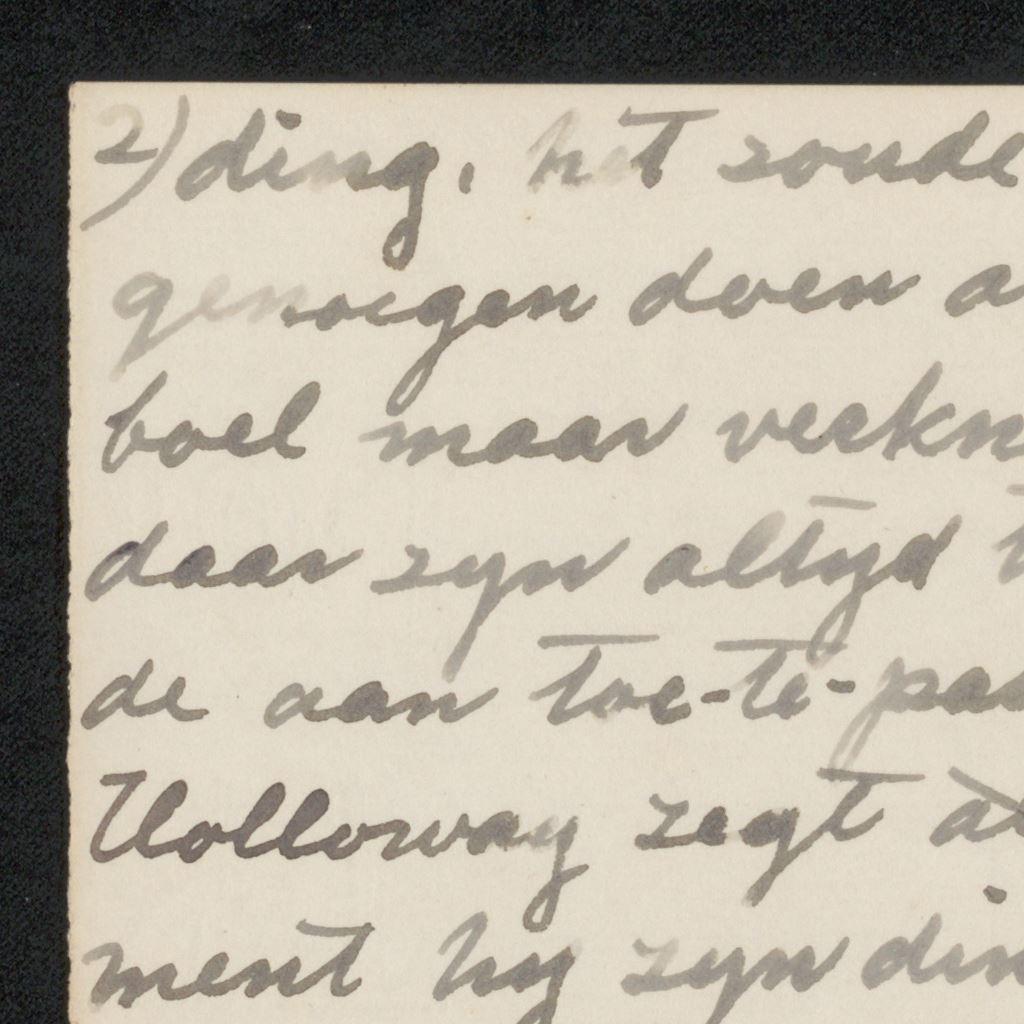 2) ding, het zoude
genoegen doen a
boel maar veekn
daar zyn altyd t
de aan toe-te-pas
Holloway zegt al
ment hy zyn din